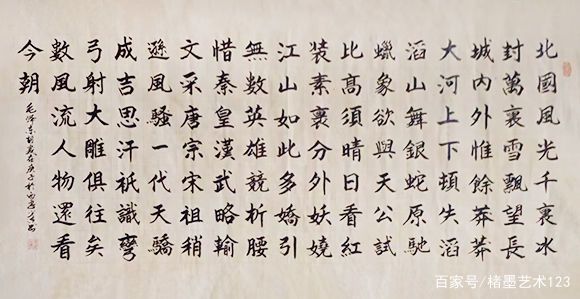 北國風光千裏冰
封萬裏雪飄望長
城内外惟餘莽莽
大河上下頓失滔
滔山舞銀蛇原馳
蠟象欲與天公試
比高須晴日看紅
裝素裹分外妖嬈
江山如此多嬌引
無數英雄競折腰
惜秦皇漢武略輸
文采唐宗宋祖稍
遜風騷一代天驕
成吉思汗祇識彎
弓射大雕俱往矣
數風流人物還看
今朝
毛澤東
百家号/楮墨艺术123